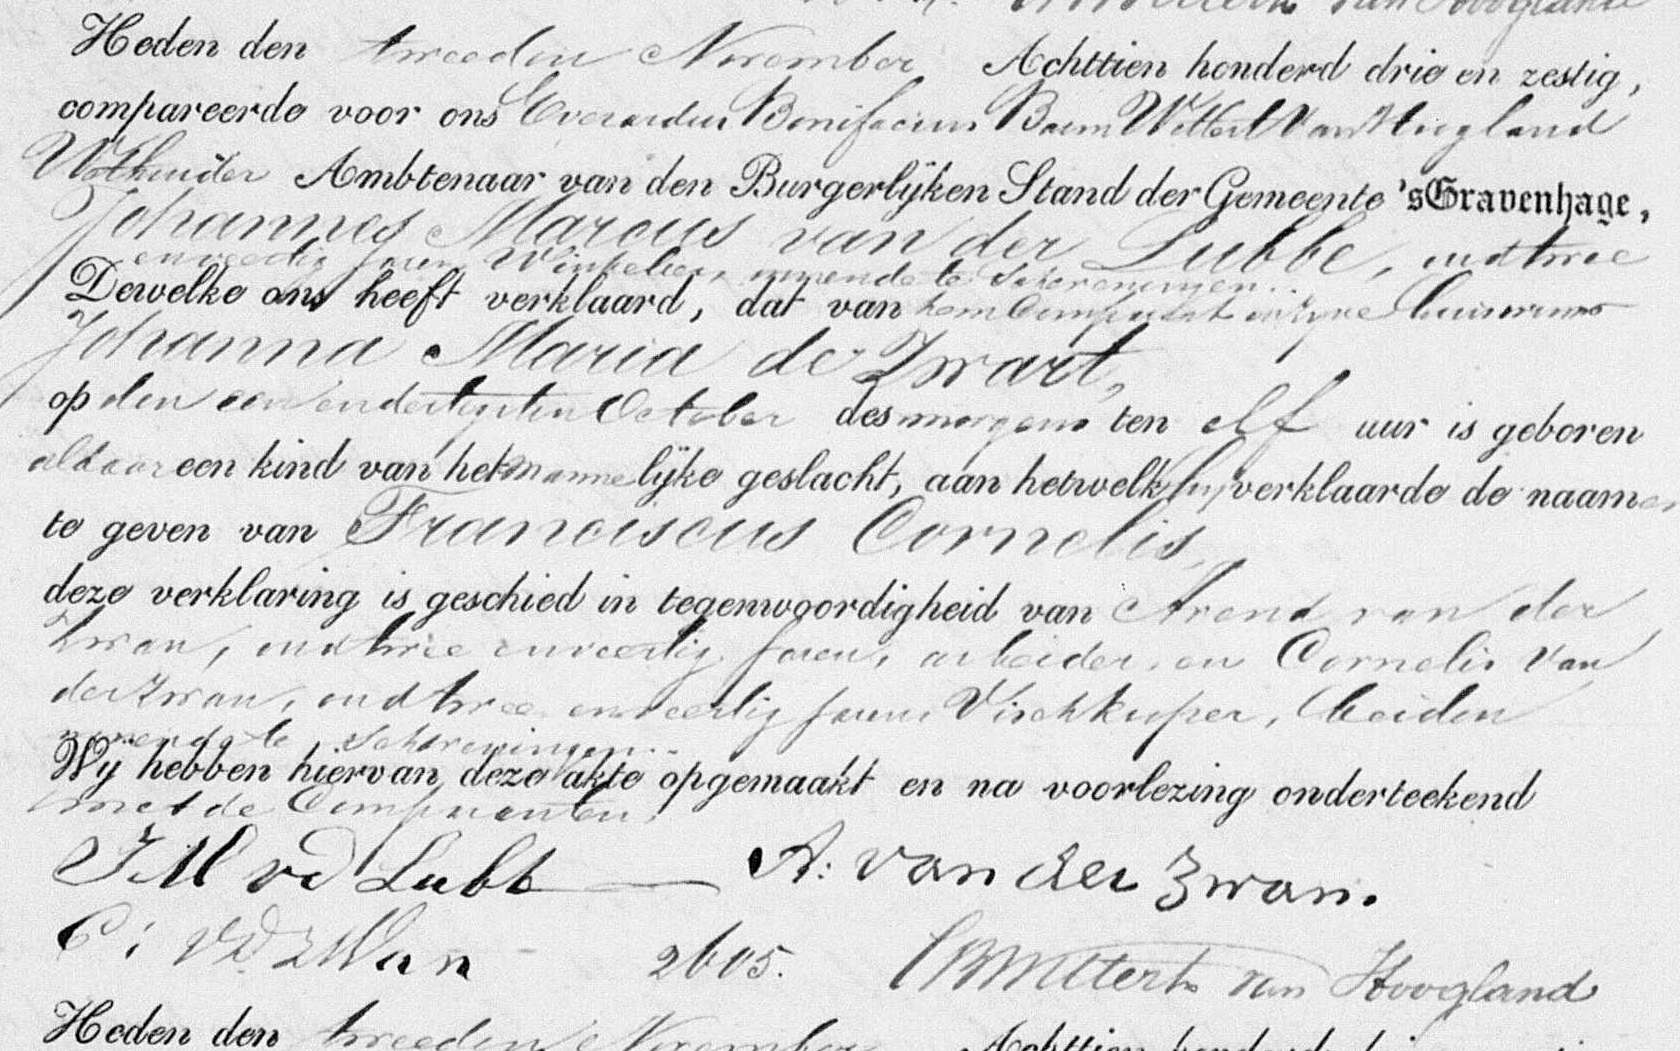 van Hoogland
Heden den tweeden November Achttien honderd drie en zestig,
compareerde voor ons Everardus Bonifacius Baron Wittert Van Hoogland
Wethouder Ambtenaar van den Burgerlijken Stand der Gemeente 'sGravenhage,
Johannes Marcus van der Lubbe, oud twee
en veertig jaren, Winkelier, wonende te Scheveningen..
Dewelke ons heeft verklaard, dat van hem Comparant en zijne huisvrouw
Johanna Maria de Zwart,
op den een en dertigsten October des morgens ten elf uur is geboren
aldaar een kind van het mannelijke geslacht, aan hetwelk hij verklaarde de naamen
te geven van Franciscus Cornelis,
deze verklaring is geschied in tegenwoordigheid van Arend van der
Zwan, oud twee en veertig jaren, arbeider, en Cornelis van
der Zwan, oud twee en veertig jaren Vischkuper, beiden
wonende te Scheveningen..
Wij hebben hiervan deze akte opgemaakt en na voorlezing onderteekend
met de Comparanten.
J M vd Lubb A. van der Zwan.
C: VD ZWan 2605. Wittert van Hoogland
Heden den tweeden November Achttien honderd